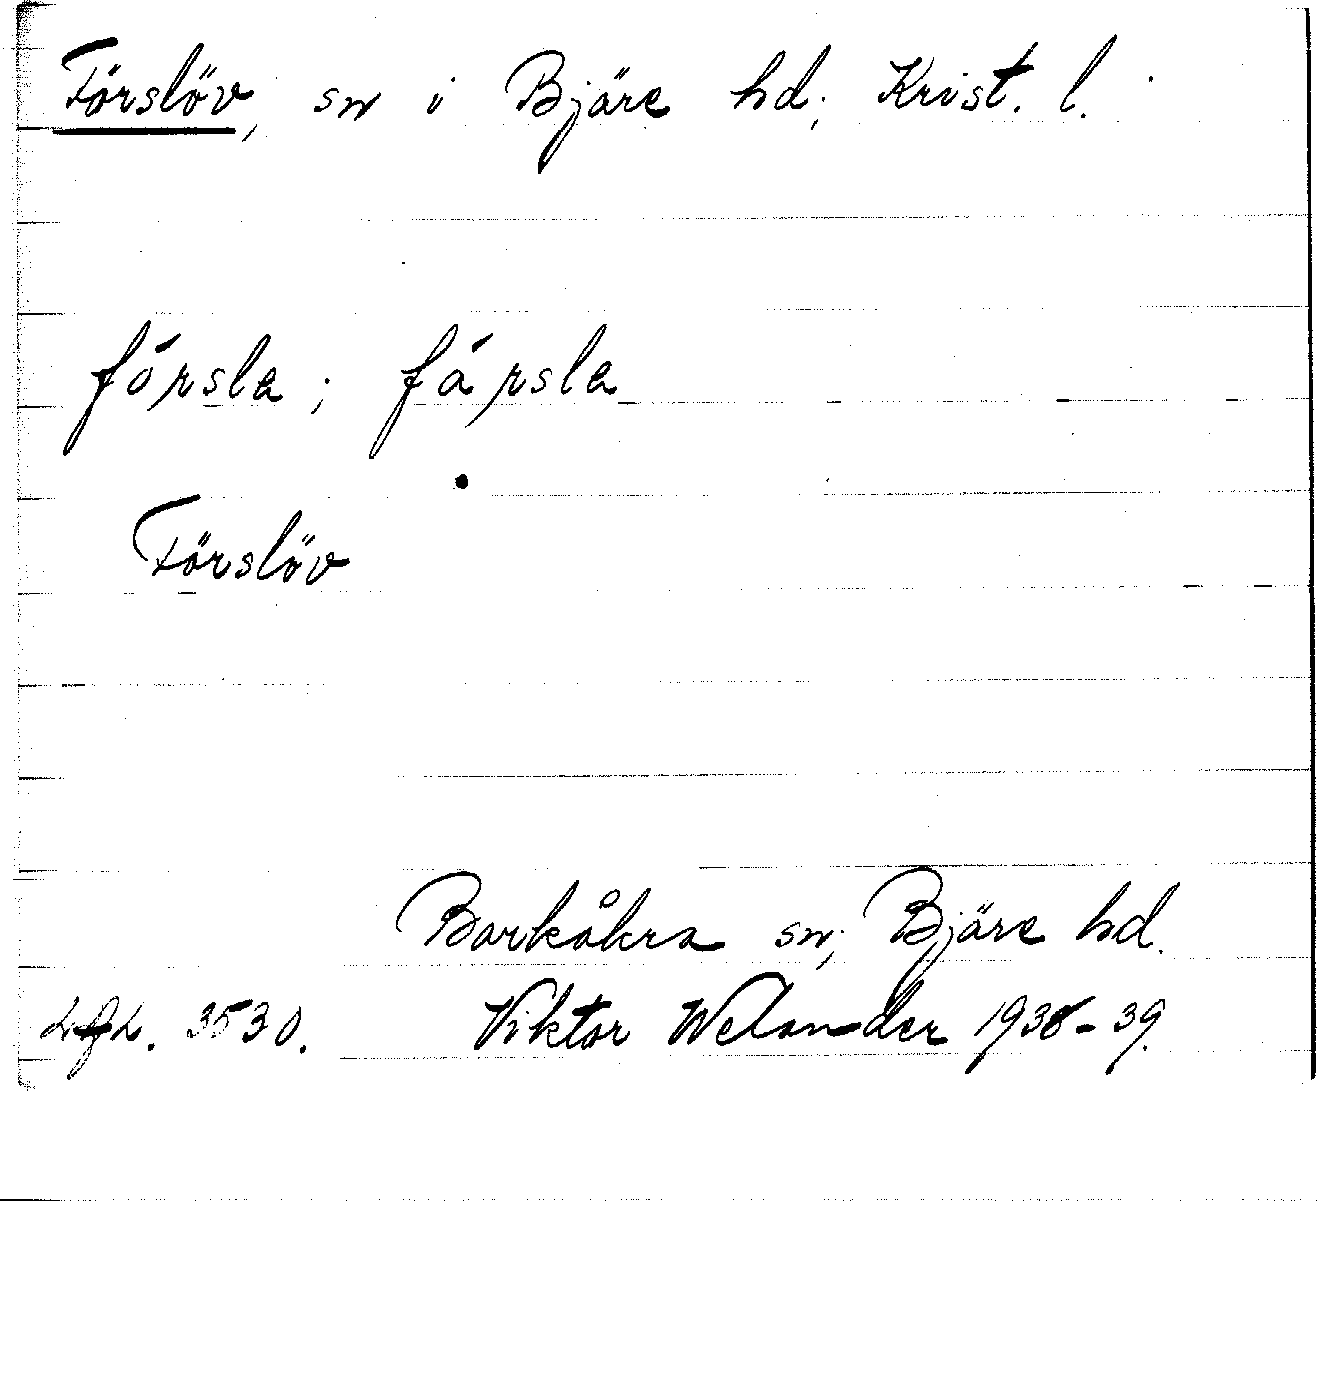 Förslöv, sn i Bjäre hd, Krist. l.
fórsla; fársla
Förslöv
Barkåkra sn, Bjäre hd.
LgL. 3530. Viktor Welander 1938-39.